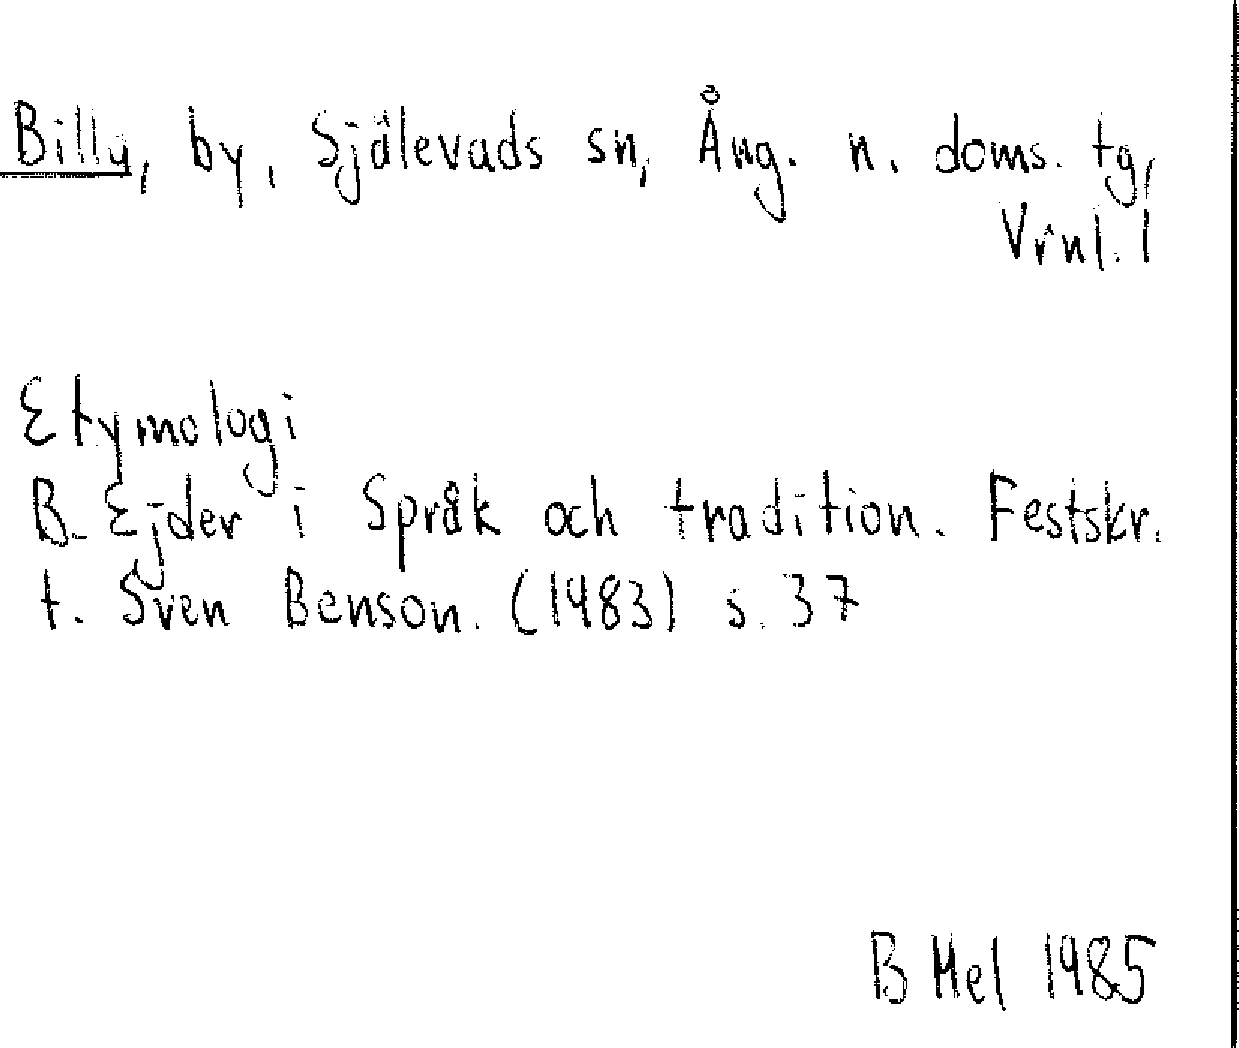 Billa, by, Själevads sn, Ång. n. doms. tg,
Vrnl. l
Etymologi
B. Ejder i Språk och tradition. Festskr.
t. Sven Benson. (1983) s. 37
B Mel 1985